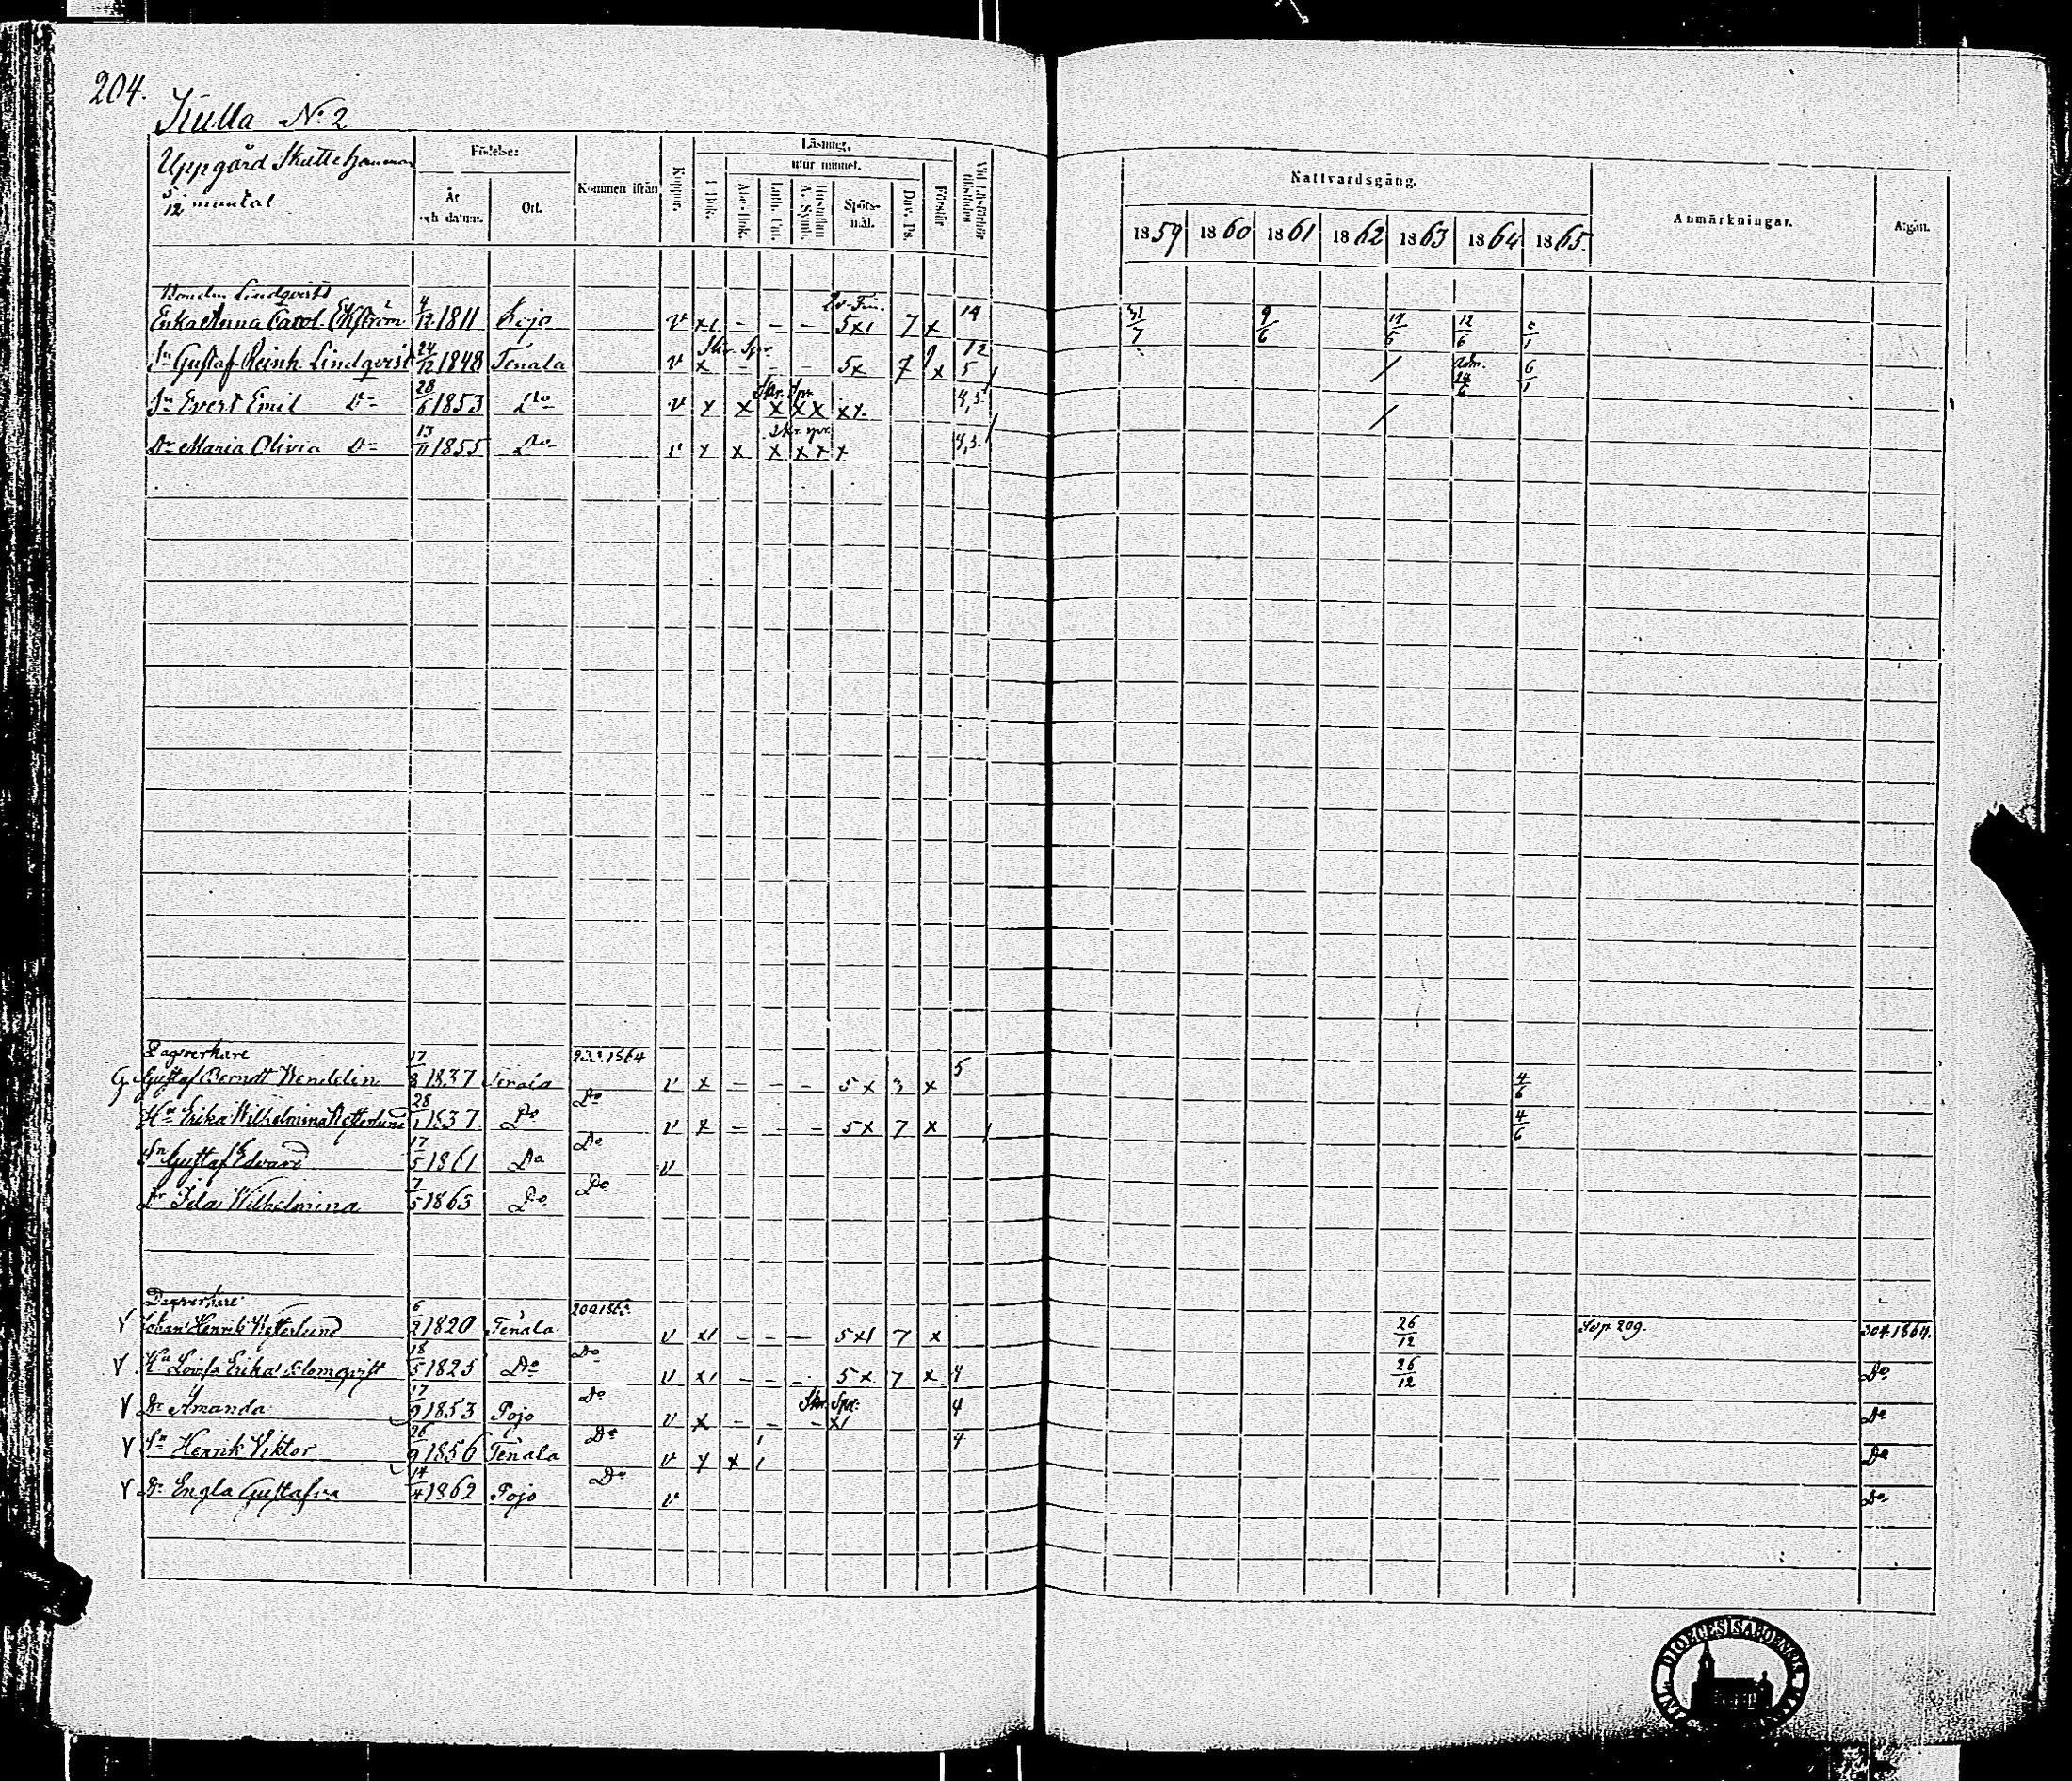 204.
Kulla No 2
Uppgård Skuttehamman
5/12 mantal
Födelse:
År och datum.
Ort.
Kommen ifrån
Koppor.
Läsning,
I Bok.
utur minnet.
Abc-Bok.
Luth. Cat.
Hustaflan A. Symb.
Spörs-mål.
Dav. Ps.
Förstår
Vid Läsförhör tillstädes
Nattvardsgång.
1859 1860 1861 1862 1863 1864 1865.
Anmärkningar.
Afgån.
Bonden Lindqvists 2v-Fin.
Enka Anna Carol. Ekström 4/12 1811 Lojo v x1 - - - 5x1 7 x 14 31/7 9/6 6/1
Skr. Spr.
Sn Gustaf Reinh. Lindqvist 24/12 1848 Tenala v x - - - 5x 7 x 12 5 / Adm. 24/6 6/1
Skr. Spr.
Sn Evert Emil Do 28/6 1853 Do v x x x xx xx. 4,5 /
Skr. spr.
Dr Maria Olivia Do 13/11 1855 Do v x x x x x x 4,5.
Dagsverkare
G. Gustaf Berndt Wendelin 17/8 1837 Tenala 1864 v x - - - 5x 3 x 5 4/6
Hu Erika Wilhelmina Wetterlund 28/1 1837 Do Do v x - - - 5x 7 x 4/6
Sn Gustaf Edvard 17/5 1861 Do Do v
Dr Ida Wilhelmina 7/5 1863 Do Do
Dagsverkare
V Johan Henrik Wetterlund 6/2 1820 Tenala v x1 - - - 5x1 7 x 26/12 Se p. 209. 304.1864.
V Hu Lovisa Erika Blomqvist 18/5 1825 Do Do v x1 - - - 5x 7 x 4 26/12 Do
Skr. Spr.
V Dr Amanda 17/9 1853 Pojo Do v x - - - x1 4 Do
V Sn Henrik Viktor 26/9 1856 Tenala Do v x x 4 Do
V Dr Engla Gustafva 14/4 1862 Pojo Do v Do
DIOECESIS ABOENSIS